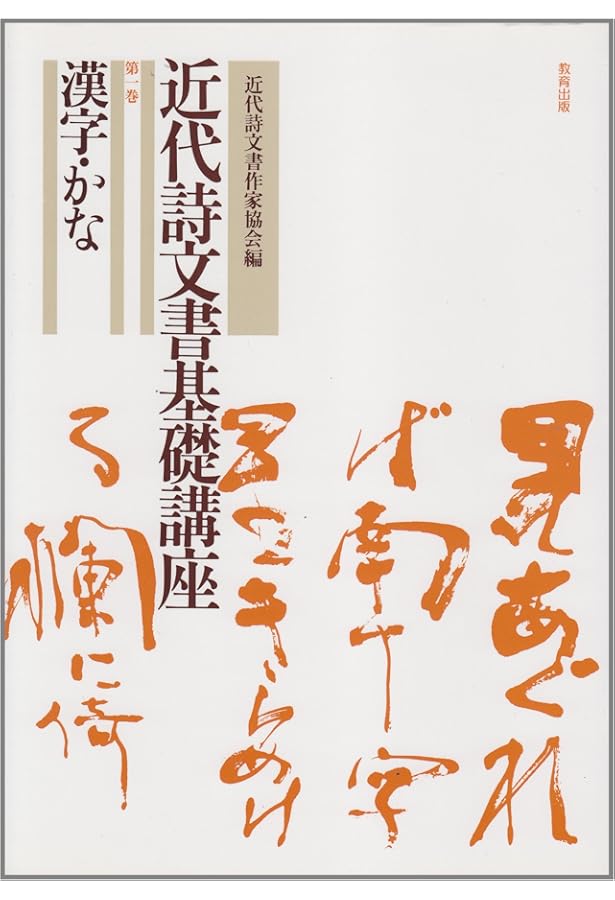 教育出版
近代詩文書作家協会編
近代詩文書基礎講座
第一巻
漢字・かな
見あぐれ
ば南十字
星きらめけ
る欄に倚